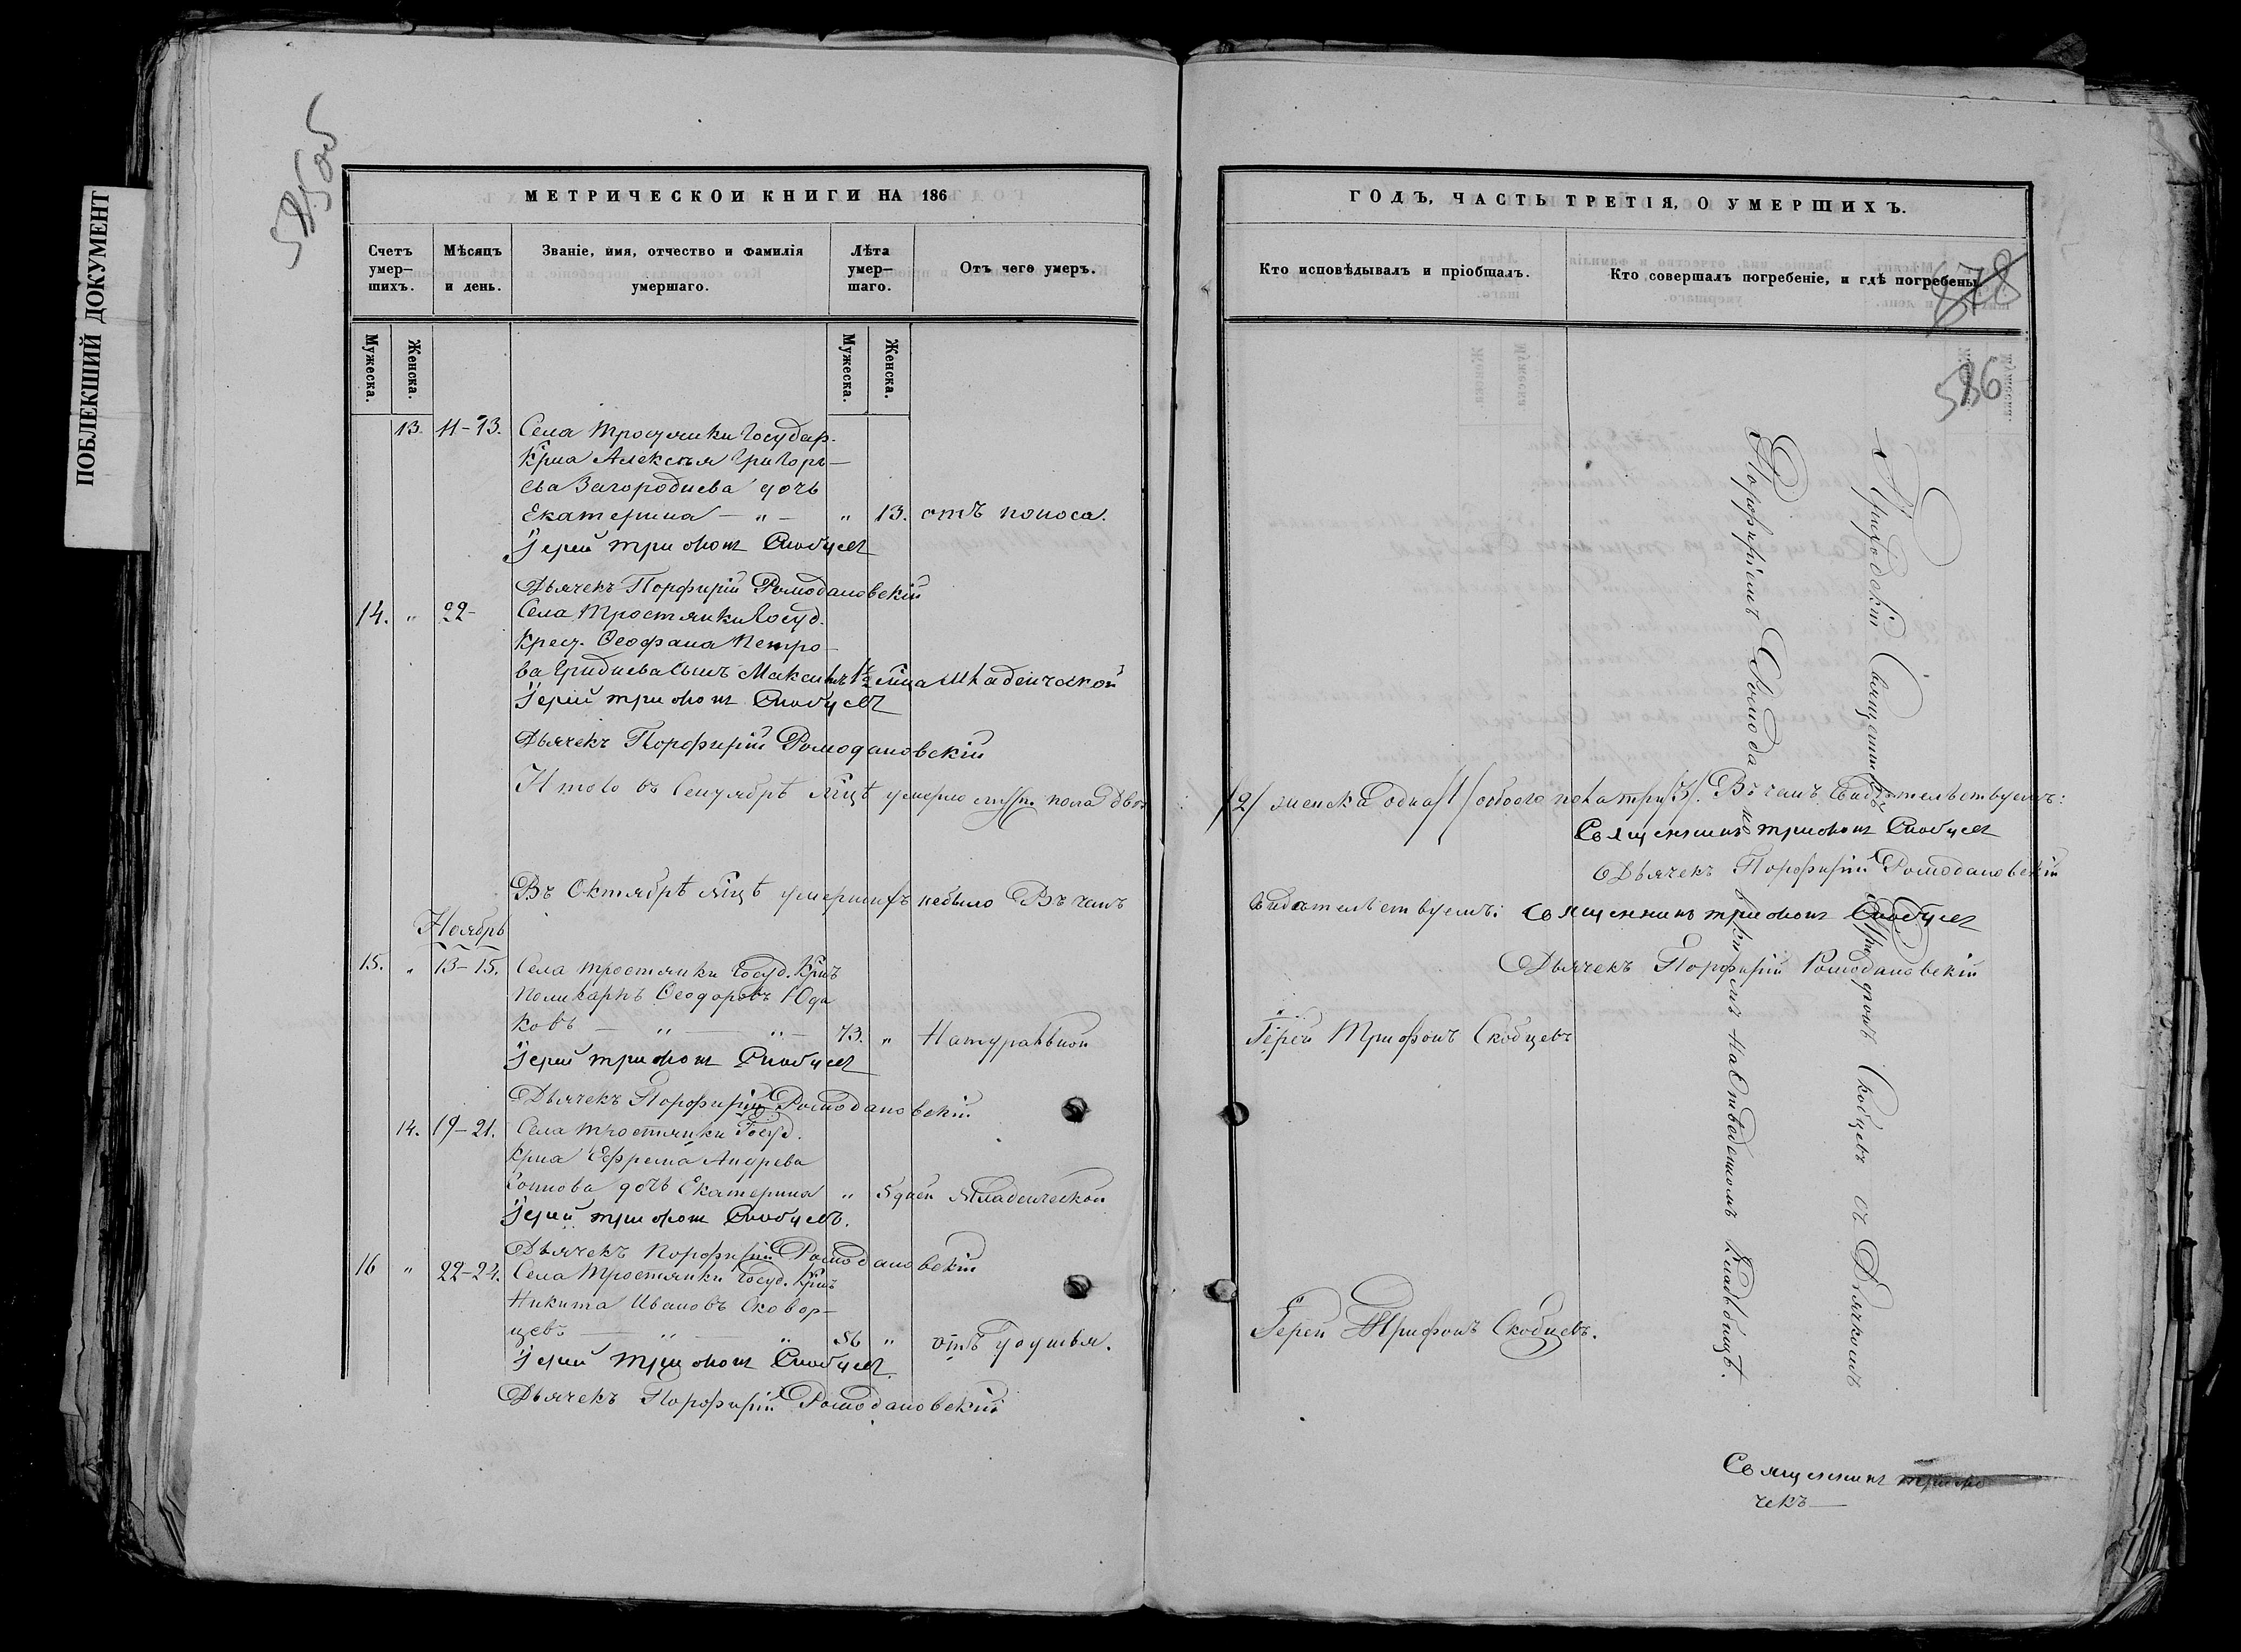 ПОБЛЕКШИЙ ДОКУМЕНТ
МЕТРИЧЕСКОЙ КНИГИ НА 186
Счетъ умер-шихъ.
Мѣсяцъ и день.
Званіе, имя, отчество и фамилія умершаго.
Лѣта умер-шаго.
Отъ чего умеръ.
Мужеска.
Женска.
Мужеска.
Женска.
13. 11-13. Села Тростянки Государ.
Крна Алексѣя Григорь-
ева Загороднева дочь
Екатерина — " — " 13. отъ поноса.
Іерей Трифонъ Скобцевъ
Дьячекъ Порфирій Ромодановскій
14. " 22- Села Тростянки Госуд.
Крест. Ѳеофана Петро-
ва Гриднева сынъ Максимъ 1½ мца Младенческой
Іерей Трифонъ Скобцевъ
Дьячекъ Порфирій Ромодановскій
Итого въ Сентябрѣ мцѣ умерло муж. пола двое
Въ Октябрѣ мцѣ умершихъ небыло Въ чемъ
Ноябрь
15. " 13-15. Села Тростянки Госуд. Крнъ
Поликарпъ Ѳеодоровъ Юда
ковъ — " — " — 73. " Натуральной
Іерей Трифонъ Скобцевъ
Дьячекъ Порфирій Ромодановскій
14. 19-21. Села Тростянки Госуд.
Крна Ефрема Андрева
дочь Екатерина " 5 дней Младенческой
Іерей Трифонъ Скобцевъ.
Дьячекъ Порфирій Ромодановскій
16 " 22-24. Села Тростянки Госуд. Крнъ
Никита Ивановъ Сковор-
цевъ — " — " 56 " отъ удушья.
Іерей Трифонъ Скобцевъ.
Дьячекъ Порфирій Ромодановскій
ГОДЪ, ЧАСТЬ ТРЕТІЯ, О УМЕРШИХЪ.
Кто исповѣдывалъ и пріобщалъ.
Кто совершалъ погребеніе, и гдѣ погребены.
678
586
/2/ женска одна /1/ обоего пола три /3/. Въ чемъ свидѣтельствуемъ:
Священникъ Трифонъ Скобцевъ
Дьячекъ Порфирій Ромодановскій
свидѣтельствуемъ: Священникъ Трифонъ Скобцевъ
Дьячекъ Порфирій Ромодановскій
Іерей Трифонъ Скобцевъ
Іерей Трифонъ Скобцевъ.
Приходскій Священникъ Трифонъ Скобцевъ съ Дьячкомъ
Порфиріемъ Ромодановскимъ на отведенномъ кладбищѣ.
Священникъ Трифо
чекъ